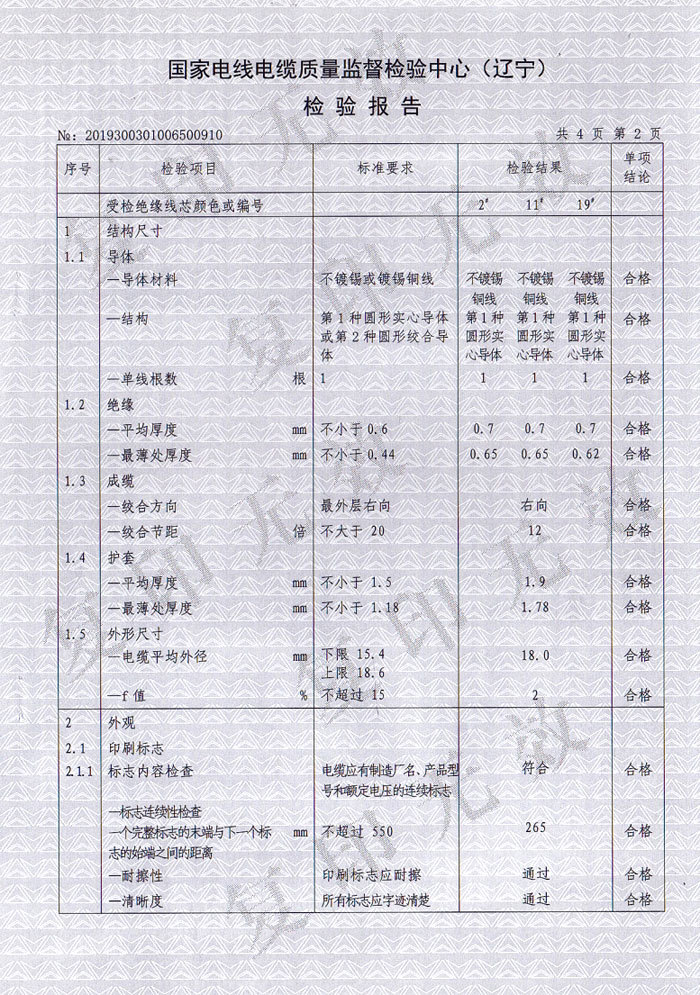 国家电线电缆质量监督检验中心（辽宁）
检验报告
№：2019300301006500910 共 4 页 第 2 页
序号 检验项目 标准要求 检验结果 单项结论
受检绝缘线芯颜色或编号 2# 11# 19#
1 结构尺寸
1.1 导体
—导体材料 不镀锡或镀锡铜线 不镀锡铜线 不镀锡铜线 不镀锡铜线 合格
—结构 第1种圆形实心导体或第2种圆形绞合导体 第1种圆形实心导体 第1种圆形实心导体 第1种圆形实心导体 合格
—单线根数 根 1 1 1 1 合格
1.2 绝缘
—平均厚度 mm 不小于 0.6 0.7 0.7 0.7 合格
—最薄处厚度 mm 不小于 0.44 0.65 0.65 0.62 合格
1.3 成缆
—绞合方向 最外层右向 右向 合格
—绞合节距 倍 不大于 20 12 合格
1.4 护套
—平均厚度 mm 不小于 1.5 1.9 合格
—最薄处厚度 mm 不小于 1.18 1.78 合格
1.5 外形尺寸
—电缆平均外径 mm 下限 15.4 18.0 合格
上限 18.6
—f 值 % 不超过 15 2 合格
2 外观
2.1 印刷标志
2.1.1 标志内容检查 电缆应有制造厂名、产品型号和额定电压的连续标志 符合 合格
—标志连续性检查
一个完整标志的末端与下一个标志的始端之间的距离 mm 不超过 550 265 合格
—耐擦性 印刷标志应耐擦 通过 合格
—清晰度 所有标志应字迹清楚 通过 合格
复印无效
复印无效
复印无效
复印无效
复印无效